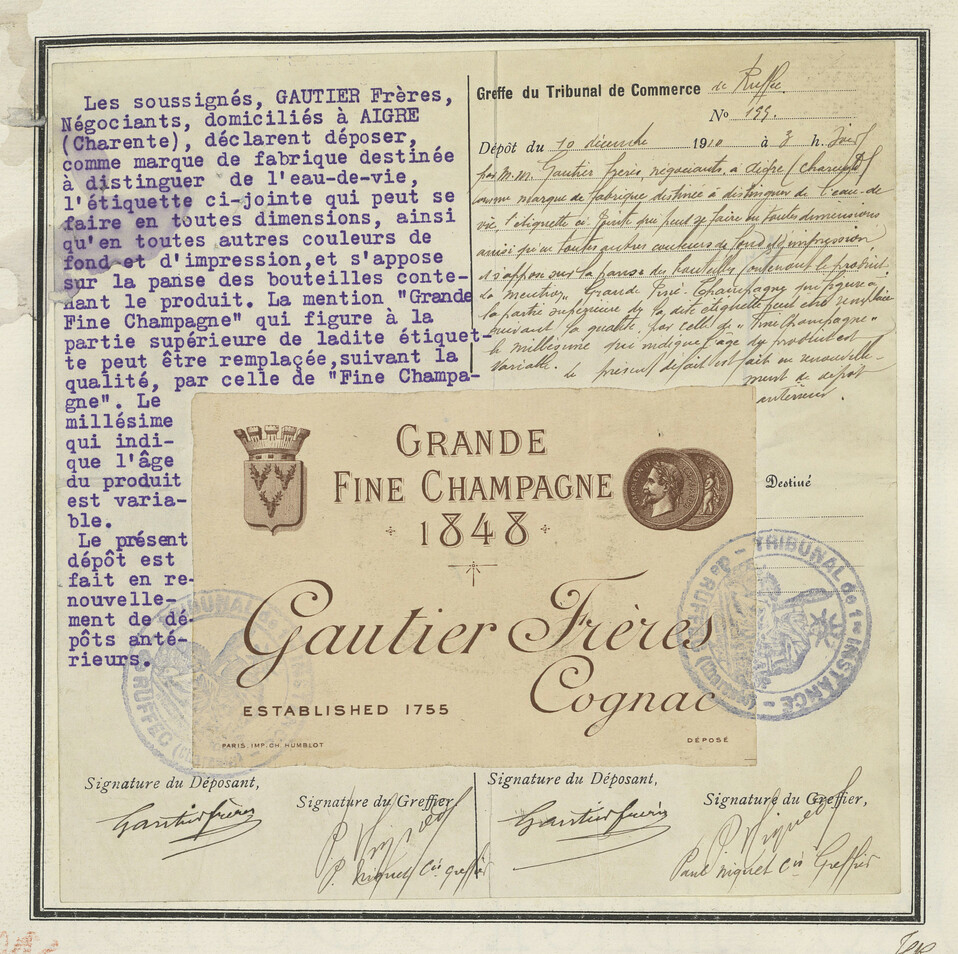 Les soussignés, GAUTIER Frères,
Négociants, domiciliés à AIGRE
(Charente), déclarent déposer,
comme marque de fabrique destinée
à distinguer de l'eau-de-vie,
l'étiquette ci-jointe qui peut se
faire en toutes dimensions, ainsi
qu'en toutes autres couleurs de
fond et d'impression, et s'appose
sur la panse des bouteilles conte-
nant le produit. La mention "Grande
Fine Champagne" qui figure à la
partie supérieure de ladite étiquet-
te peut être remplaçée, suivant la
qualité, par celle de "Fine Champa-
gne". Le
millésime
qui indi-
que l'âge
du produit
est varia-
ble.
Le présent
dépôt est
fait en re-
nouvelle-
ment de dé-
pôts anté-
rieurs.
Greffe du Tribunal de Commerce de Ruffec
No 199.
Dépôt du 10 décembre 1910 à 3 h. Soir
par M.M. Gautier frères, négociants, à Aigre (Charente)
comme marque de fabrique destinée à distinguer de l'eau-de
vie, l'étiquette ci-jointe qui peut se faire en toutes dimensions
ainsi qu'en toutes autres couleurs de fond et d'impression
et s'appose sur la panse des bouteilles contenant le produit.
La mention "Grande Fine-Champagne qui figure à
la partie supérieure de la dite étiquette peut être remplacée
suivant la qualité, par celle de "Fine Champagne"
le millésime qui indique l'âge du produit est
variable. Le présent dépôt est fait en renouvelle-
ment de dépôt
antérieur.
Destiné
GRANDE
FINE CHAMPAGNE
1848
Gautier Frères
Cognac
ESTABLISHED 1755
PARIS, IMP. CH. HUMBLOT
DÉPOSÉ
TRIBUNAL de 1re INSTANCE
de RUFFEC
TRIBUNAL de
INST
de RUFFEC
Signature du Déposant,
Gautier frères
Signature du Greffier,
P. Miquel
P. Miquel Cis Greffier
Signature du Déposant,
Gautier frères
Signature du Greffier,
P. Miquel
Paul Miquel Cis Greffier